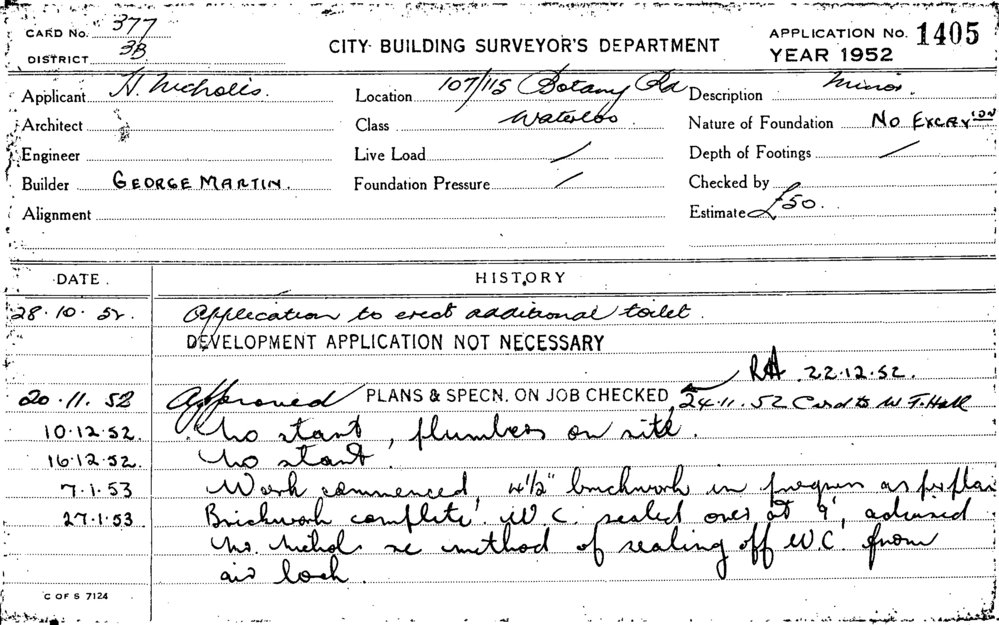 CARD No. 377
DISTRICT 3B
CITY BUILDING SURVEYOR'S DEPARTMENT
APPLICATION No. 1405
YEAR 1952
Applicant H. Nicholls. Location 107/115 Botany Rd Description Minor.
Architect Class Waterloo Nature of Foundation No EXCAVION
Engineer Live Load / Depth of Footings /
Builder GEORGE MARTIN. Foundation Pressure / Checked by
Alignment Estimate £50.
DATE. HISTORY
28.10.52. Application to erect additional toilet.
DEVELOPMENT APPLICATION NOT NECESSARY
RH 22.12.52.
20.11.52 Approved PLANS & SPECN. ON JOB CHECKED 24.11.52 Card to W. T. Hall
10.12.52. No start, plumbers on site.
16.12.52. No start.
7.1.53 Work commenced, 4½" brickwork in progress as per plan
27.1.53 Brickwork complete. W.C. sealed over at 9', advised
Mr. Nichols re method of sealing off W.C. from
air lock.
C OF S 7124